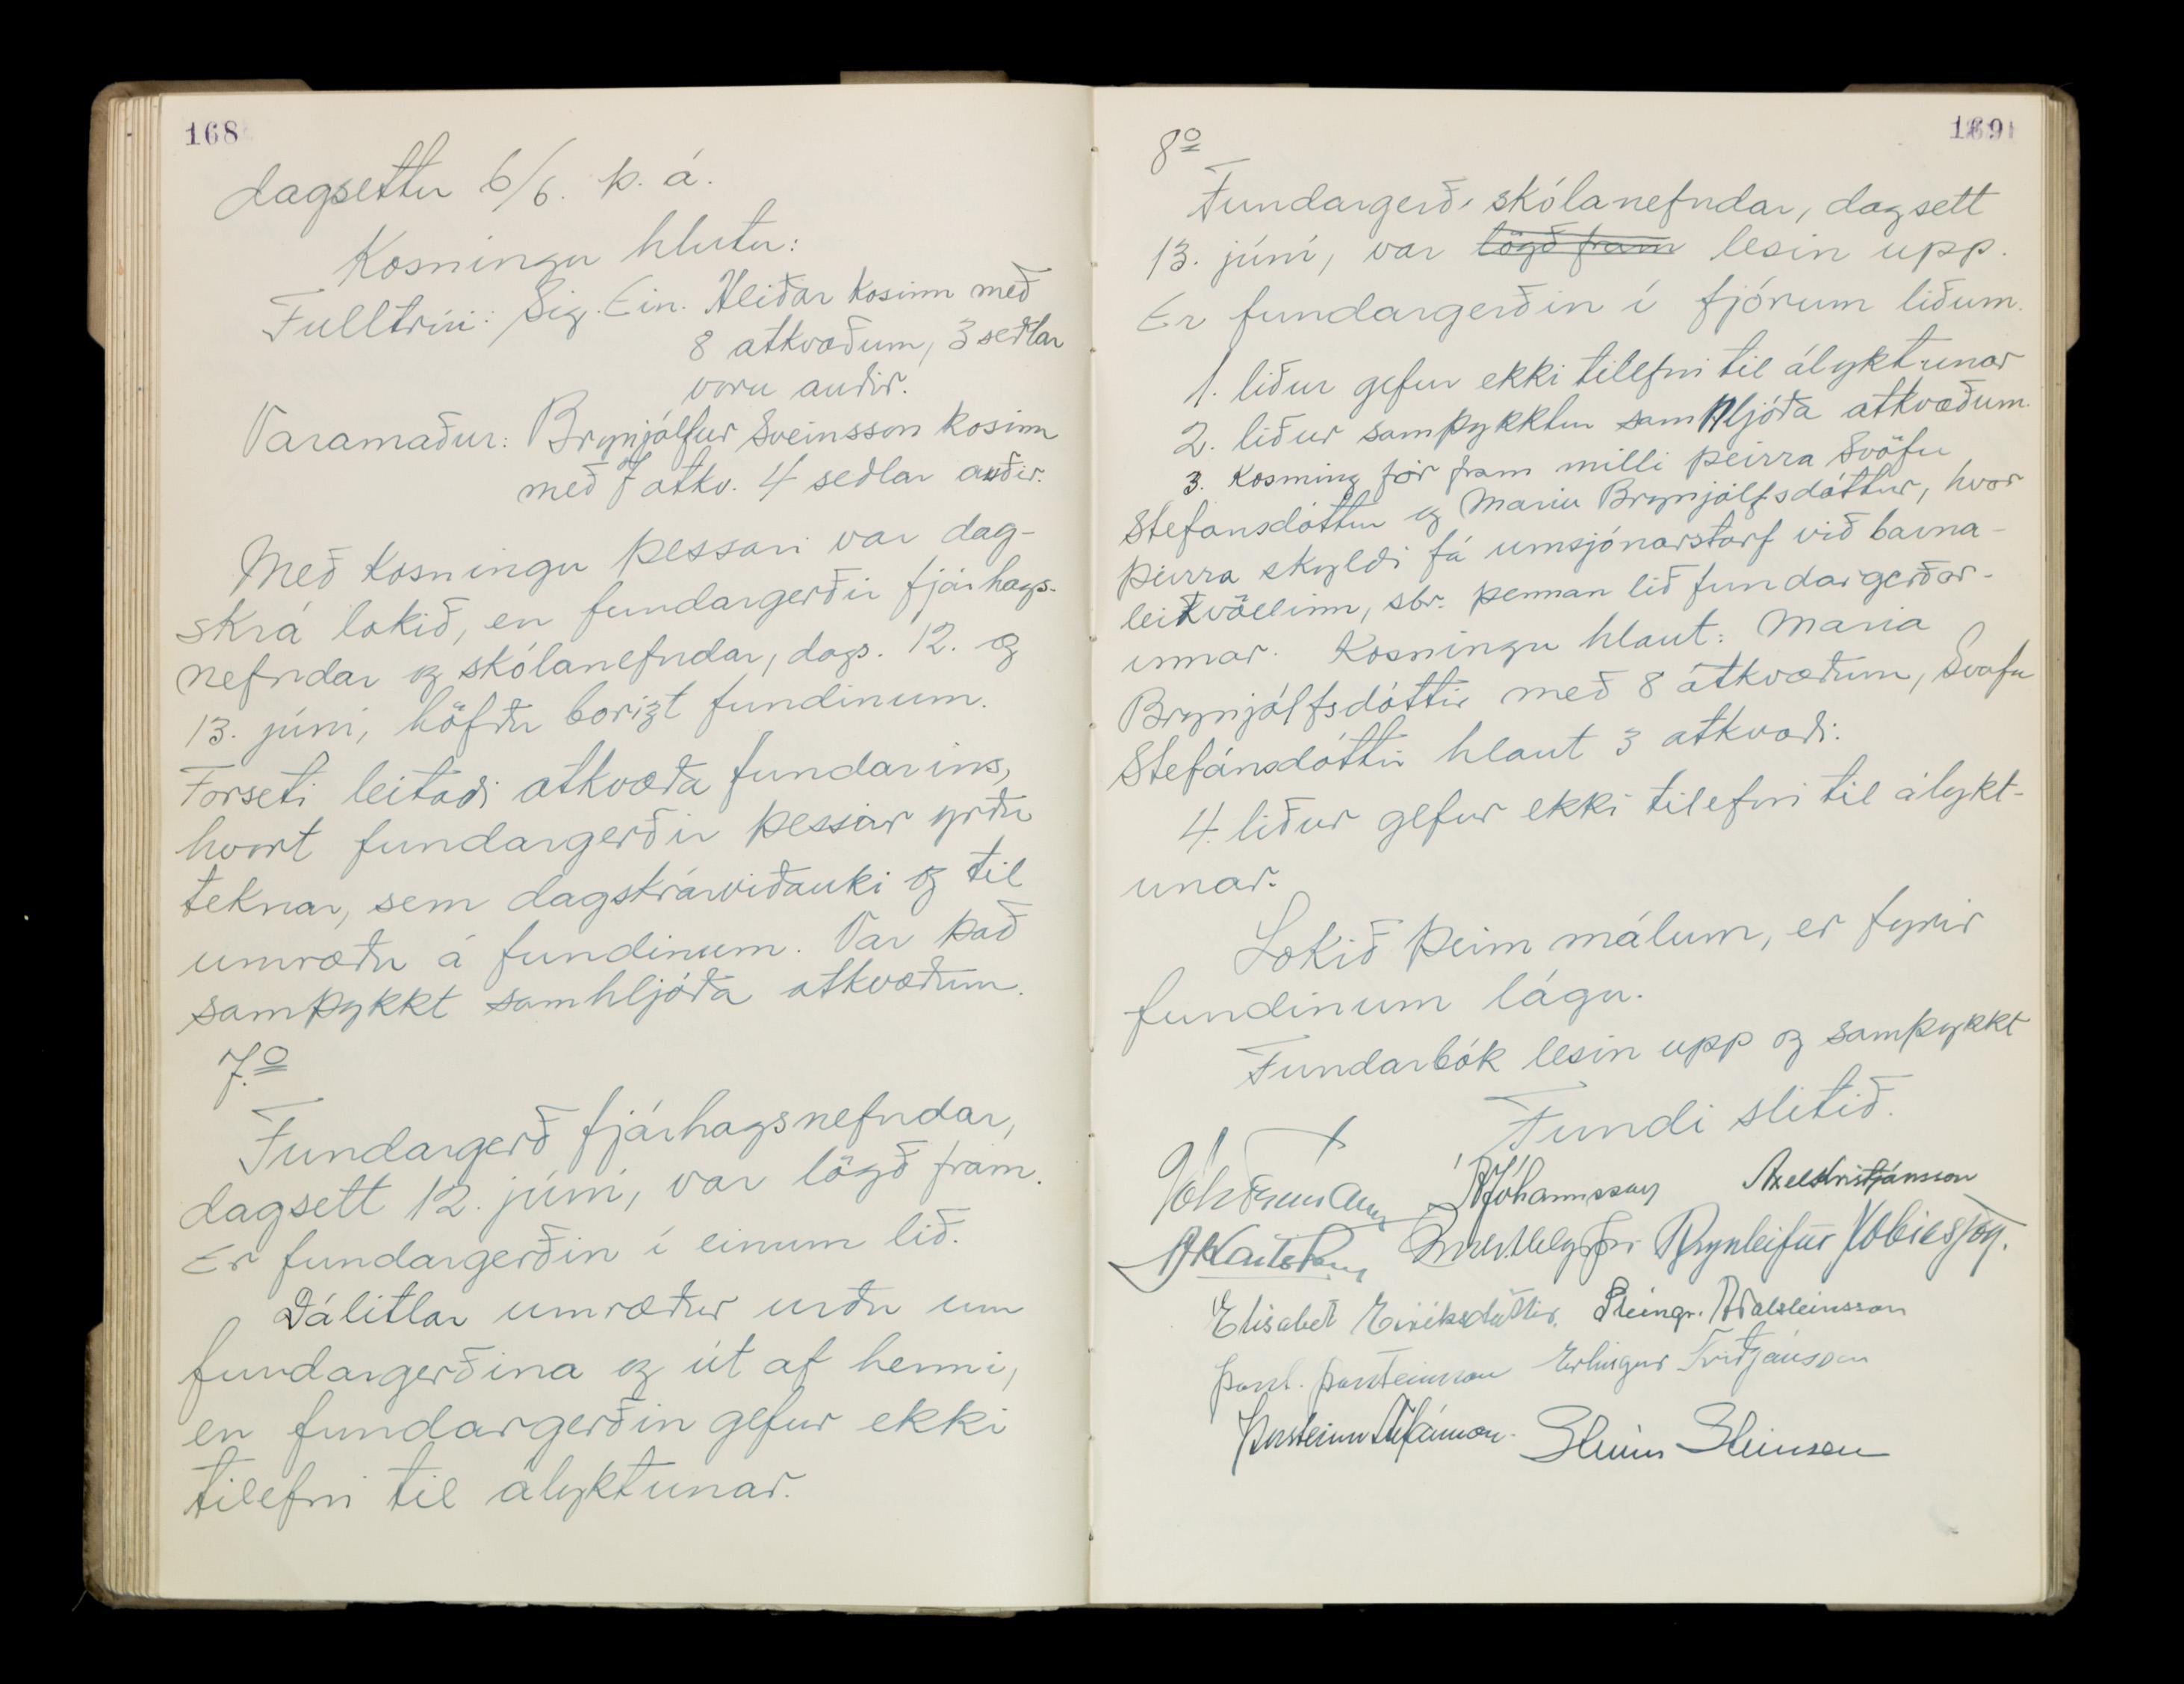 168
dagsettu 6/6. þ. á.
Kosningu hlutu:
Fulltrúi: Sig. Ein. Hlíðar kosinn með
8 atkvæðum, 3 seðlar
voru auðir.
Varamaður: Brynjólfur Sveinsson kosinn
með 7 atkv. 4 seðlar auðir.
Með kosningu þessari var dag-
skrá lokið, en fundargerðir fjárhags-
nefndar og skólanefndar, dags. 12. og
13. júní, höfðu borizt fundinum.
Forseti leitaði atkvæða fundarins,
hvort fundargerðir þessar yrðu
teknar, sem dagskrárviðauki og til
umræðu á fundinum. Var það
samþykkt samhljóða atkvæðum.
7.o
Fundargerð fjárhagsnefndar,
dagsett 12. júní, var lögð fram.
Er fundargerðin í einum lið.
Dálitlar umræður urðu um
fundargerðina og út af henni,
en fundargerðin gefur ekki
tilefni til ályktunar.
169
8o
Fundargerð skólanefndar, dagsett
13. júní, var lögð fram lesin upp.
Er fundargerðin í fjórum liðum.
1. liður gefur ekki tilefni til ályktunar
2. liður samþykktur samhljóða atkvæðum.
3. Kosning fór fram milli þeirra Svöfu
Stefánsdóttur og Maríu Brynjólfsdóttur, hvor
þeirra skyldi fá umsjónarstarf við barna-
leikvöllinn, sbr. þennan lið fundargerðar-
innar. Kosningu hlaut: María
Brynjólfsdóttir með 8 atkvæðum, Svafa
Stefánsdóttir hlaut 3 atkvæði.
4. liður gefur ekki tilefni til álykt-
unar.
Lokið þeim málum, er fyrir
fundinum lágu.
Fundarbók lesin upp og samþykkt
Fundi slitið.
AJóhannsson Axel Kristjánsson
Brynleifur Tobiasson.
Elísabet Eiríksdóttir. Steingr. Aðalsteinsson
Þorst. Þorsteinsson Erlingur Friðjónsson
Þorsteinn Stefánsson. Steinn Steinsen